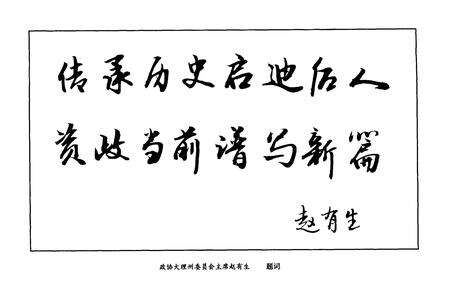 传承历史启迪后人
资政当前谱写新篇
赵有生
政协大理州委员会主席赵有生 题词